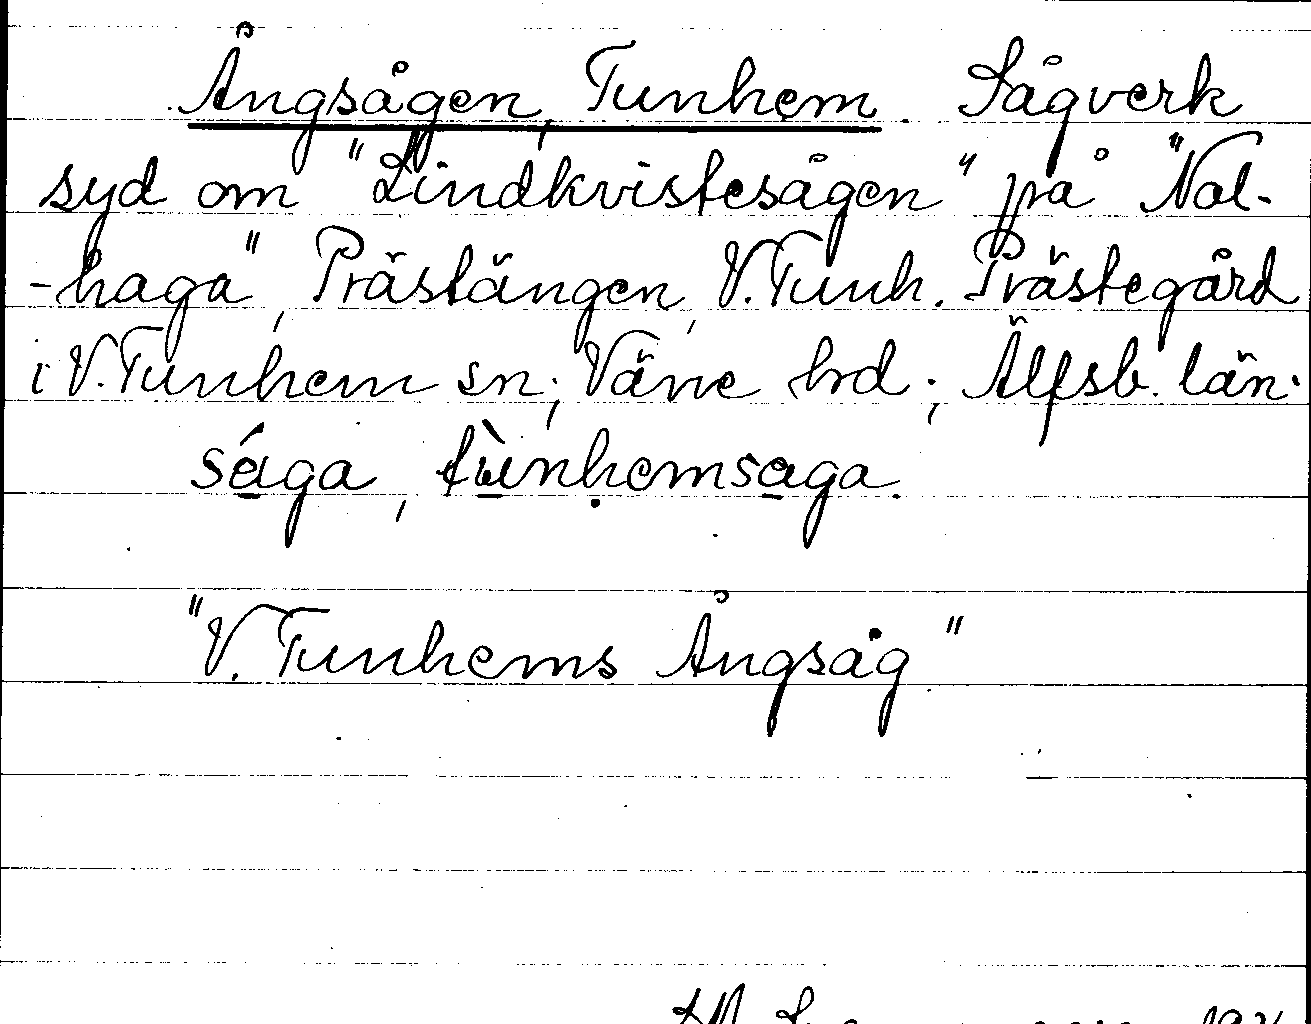 Ångsågen, Tunhem. Sågverk
syd om "Lindkvistesågen" på "Nol-
-haga", Prästängen, V. Tunh. Prästegård
i V. Tunhem sn; Väne hrd; Älfsb. län.
sága, tùnhemsaga.
"V. Tunhems Ångsåg"